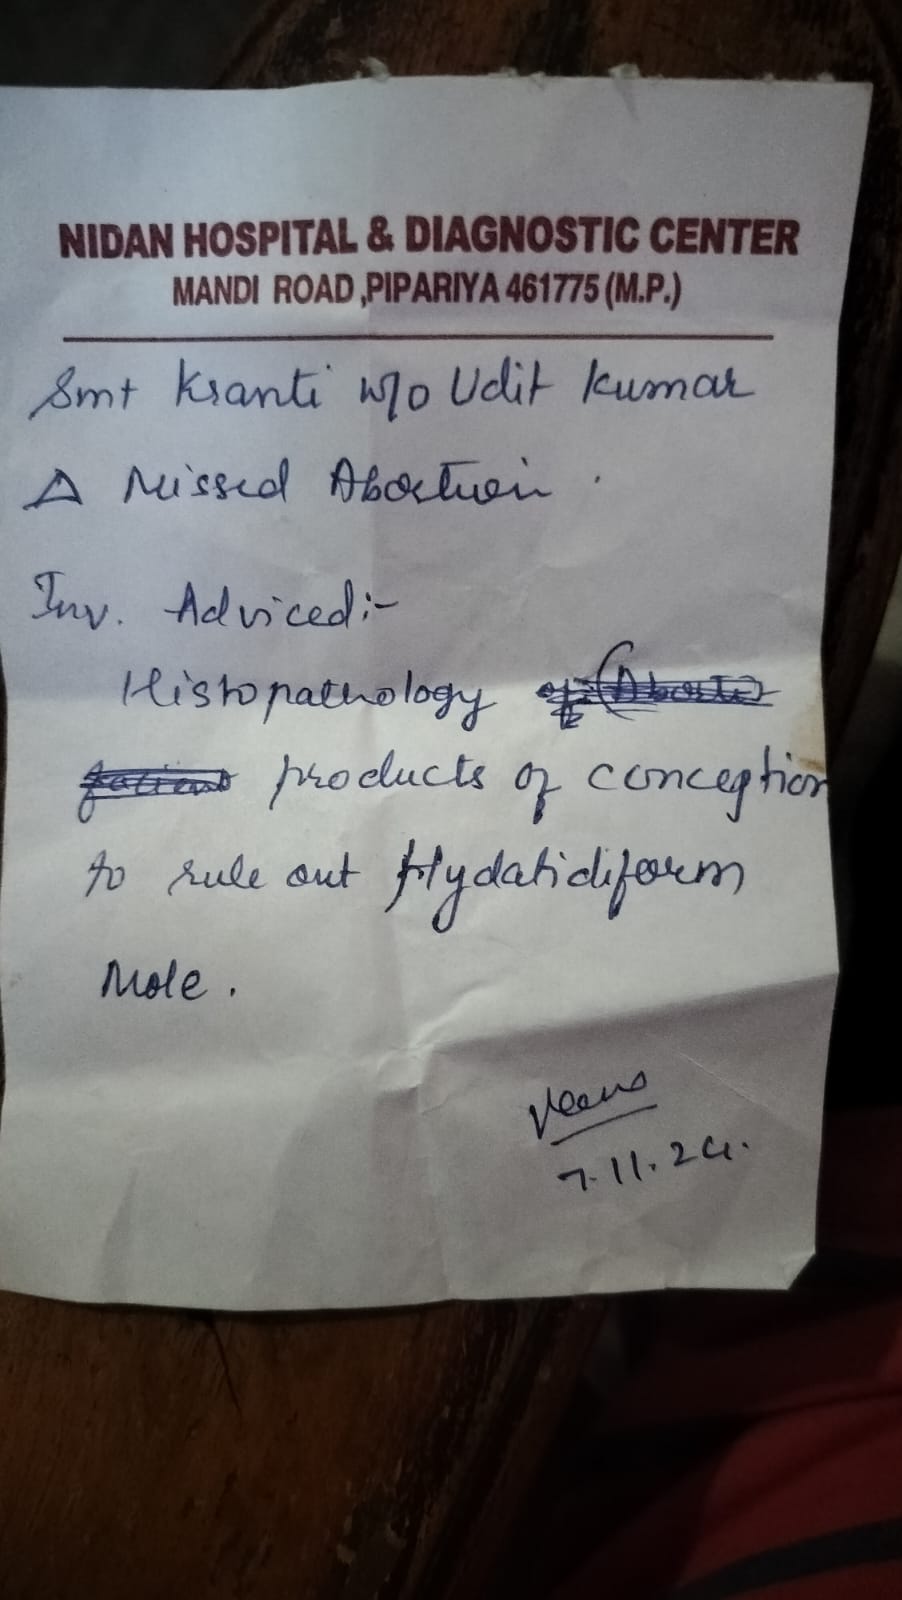 NIDAN HOSPITAL & DIAGNOSTIC CENTER
MANDI ROAD ,PIPARIYA 461775 (M.P.)
Smt Kranti w/o Udit Kumar
Δ Missed Abortion .
Inv. Adviced:-
Histopathology
products of conception
to rule out Hydatidiform
Mole .
7.11.24.